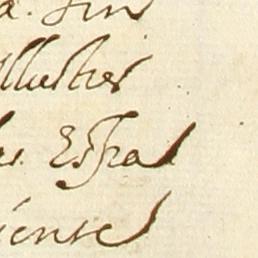 a. sin
llustres
as Espa
iente